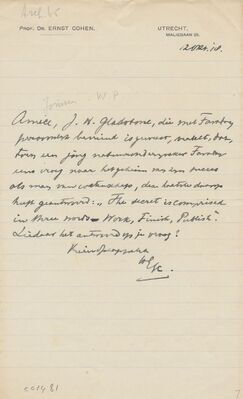 Arch. b6
PROF. DR. ERNST COHEN.
UTRECHT,
MALIEBAAN 25.
12 Oct. '18.
W P
Amice, J. H. Gladstone, die met Faraday
persoonlijk bevriend is geweest, vertelt, dat,
toen een jong natuuronderzoeker Faraday
eens vroeg naar het geheim van zijn succes
als man van wetenschap, deze laatste daarop
heeft geantwoord: „The secret is comprised
in three words – Work, Finish, Publish."
Ziedaar het antwoord op je vraag!
c01481
7